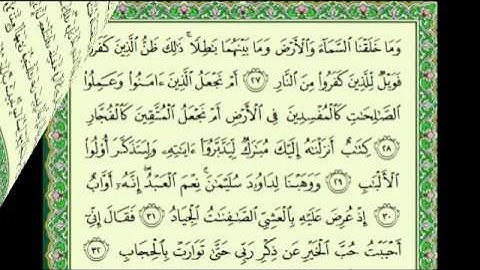 وَمَا خَلَقْنَا السَّمَاءَ وَالْأَرْضَ وَمَا بَيْنَهُمَا بَاطِلًا ۚ ذَٰلِكَ ظَنُّ الَّذِينَ كَفَرُوا
فَوَيْلٌ لِّلَّذِينَ كَفَرُوا مِنَ النَّارِ ﴿٢٧﴾ أَمْ نَجْعَلُ الَّذِينَ ءَامَنُوا وَعَمِلُوا
الصَّالِحَاتِ كَالْمُفْسِدِينَ فِي الْأَرْضِ أَمْ نَجْعَلُ الْمُتَّقِينَ كَالْفُجَّارِ
﴿٢٨﴾ كِتَابٌ أَنزَلْنَاهُ إِلَيْكَ مُبَارَكٌ لِّيَدَّبَّرُوا ءَايَاتِهِ وَلِيَتَذَكَّرَ أُولُوا
الْأَلْبَابِ ﴿٢٩﴾ وَوَهَبْنَا لِدَاوُودَ سُلَيْمَانَ ۚ نِعْمَ الْعَبْدُ ۖ إِنَّهُ أَوَّابٌ
﴿٣٠﴾ إِذْ عُرِضَ عَلَيْهِ بِالْعَشِيِّ الصَّافِنَاتُ الْجِيَادُ ﴿٣١﴾ فَقَالَ إِنِّي
أَحْبَبْتُ حُبَّ الْخَيْرِ عَن ذِكْرِ رَبِّي حَتَّىٰ تَوَارَتْ بِالْحِجَابِ ﴿٣٢﴾